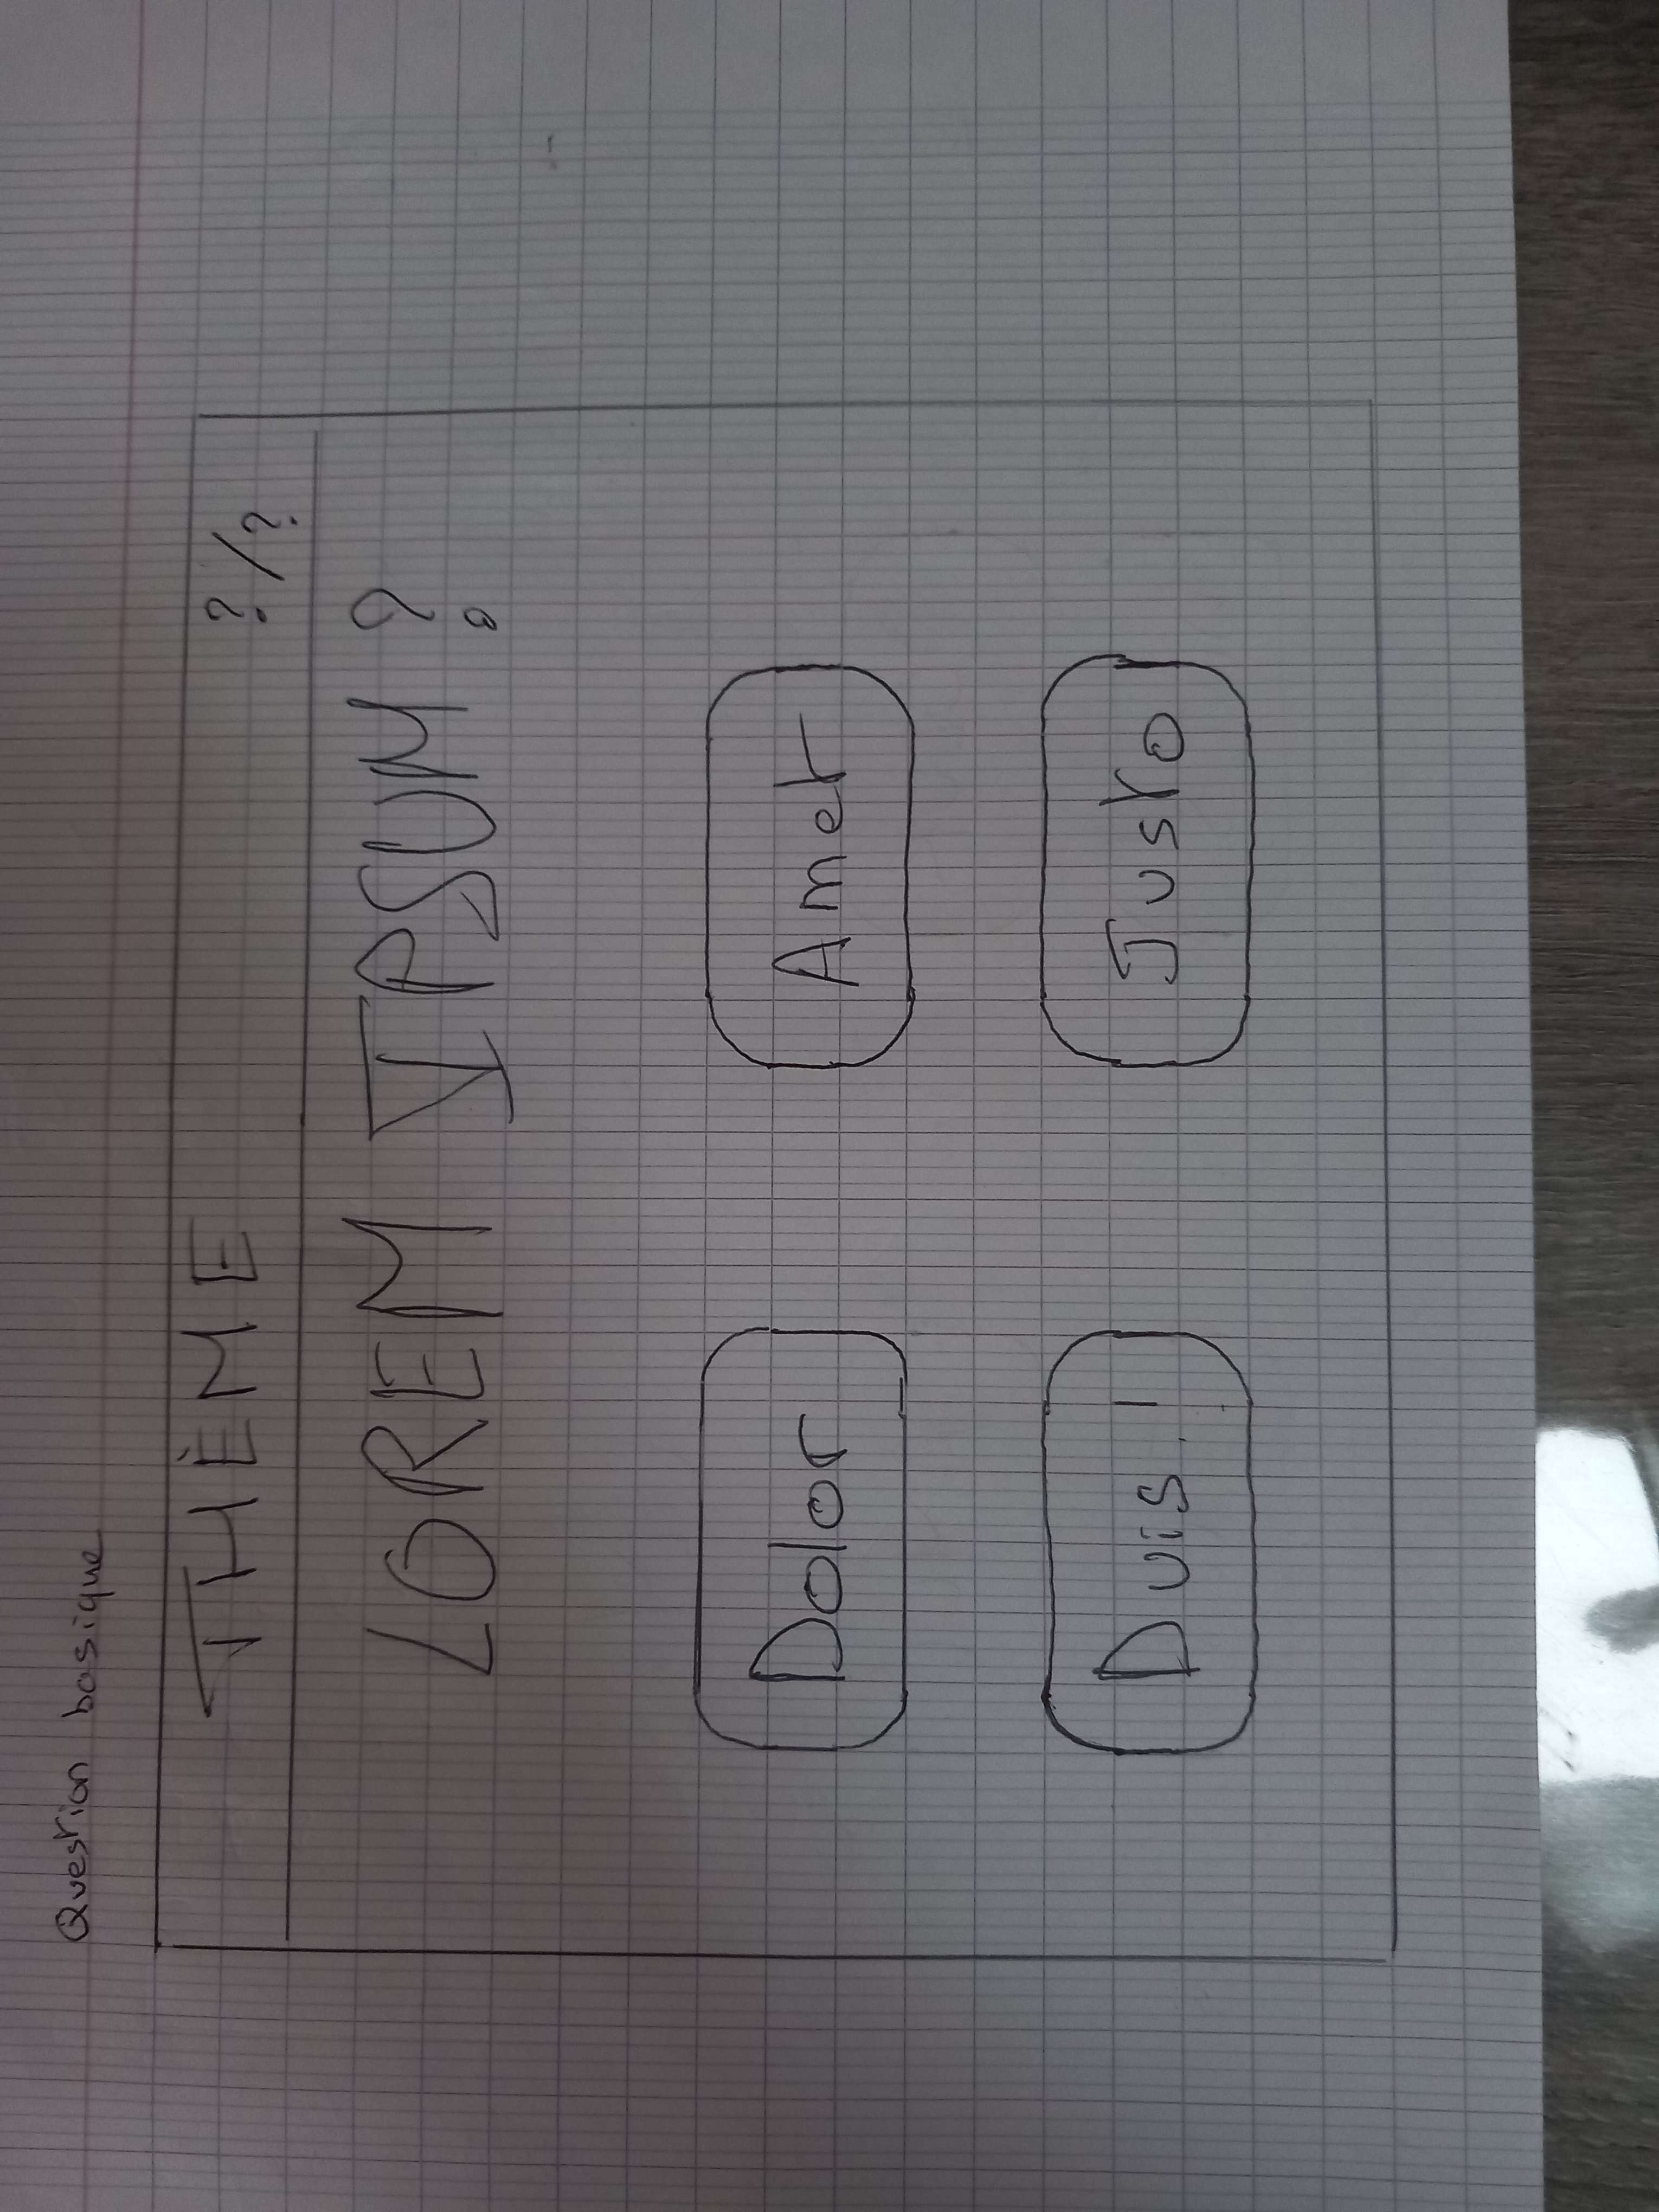 Question basique
THÈME ?/?
LOREM IPSUM ?
Dolor Amet
Duis. Justo